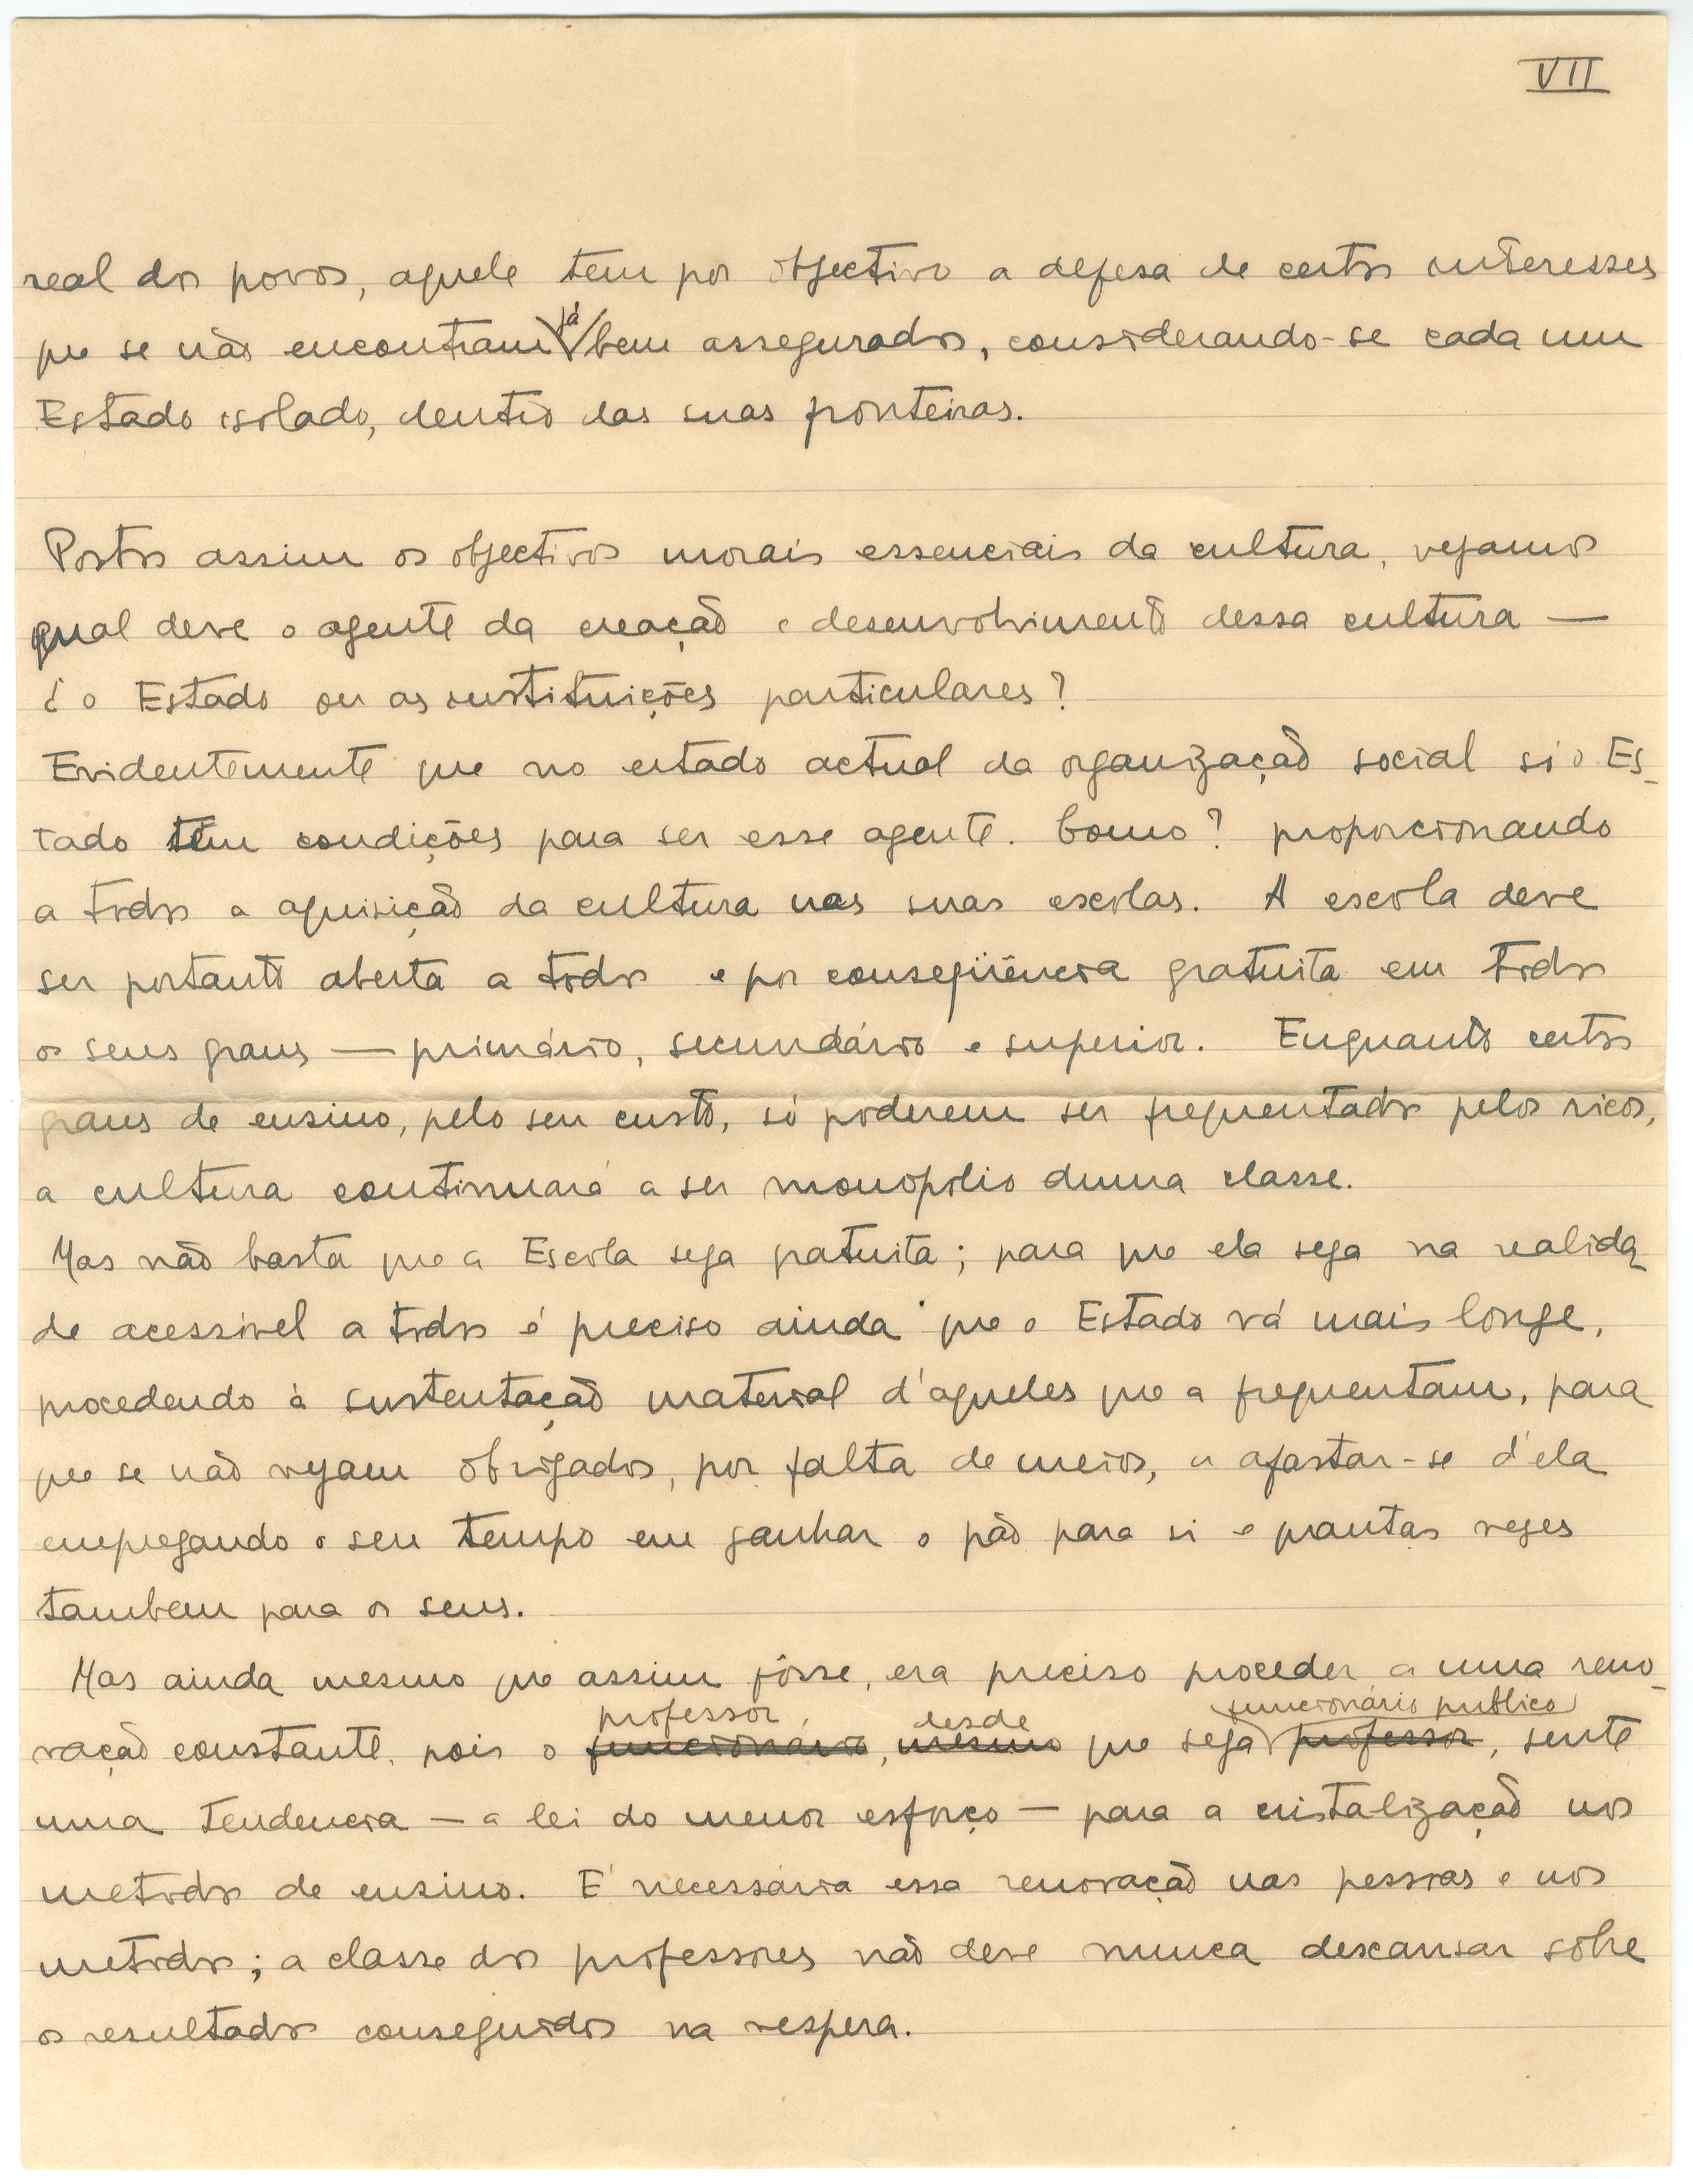 VII
real dos povos, aquele tem por objectivo a defesa de certos interesses
que se não encontram já bem assegurados, considerando-se cada um
Estado isolado, dentro das suas fronteiras.
Postos assim os objectivos morais essenciais da cultura, vejamos
qual deve o agente da creação e desenvolvimento dessa cultura —
¿ o Estado ou as instituições particulares?
Evidentemente que no estado actual da organização social só o Es-
tado tem condições para ser esse agente. Como? proporcionando
a todos a aquisição da cultura nas suas escolas. A escola deve
ser portanto aberta a todos e por conseqüência gratuita em todos
os seus graus — primário, secundário e superior. Enquanto certos
graus de ensino, pelo seu custo, só poderem ser frequentados pelos ricos,
a cultura continuará a ser monopólio duma classe.
Mas não basta que a Escola seja gratuita; para que ela seja na realida-
de acessível a todos é preciso ainda que o Estado vá mais longe,
procedendo à sustentação material d'aqueles que a frequentam, para
que se não vejam obrigados, por falta de meios, a afastar-se d'ela
empregando o seu tempo em ganhar o pão para si e quantas vezes
tambem para os seus.
Mas ainda mesmo que assim fôsse, era preciso proceder a uma reno-
professor, desde funcionário publico
vação constante, pois o funcionário, mesmo que seja professor, sente
uma tendencia — a lei do menor esforço — para a cristalização nos
metodos de ensino. É necessária essa renovação nas pessoas e nos
metodos; a classe dos professores não deve nunca descansar sôbre
os resultados conseguidos na vespera.